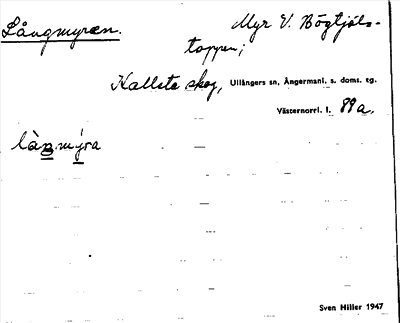 Långmyren. Myr V. Bögtjäls-
toppen;
Kallsta skog, Ullångers sn, Ångermanl. s. doms. tg.
Västernorrl. l. 89 a.
làŋmy̆ra
Sven Hiller 1947